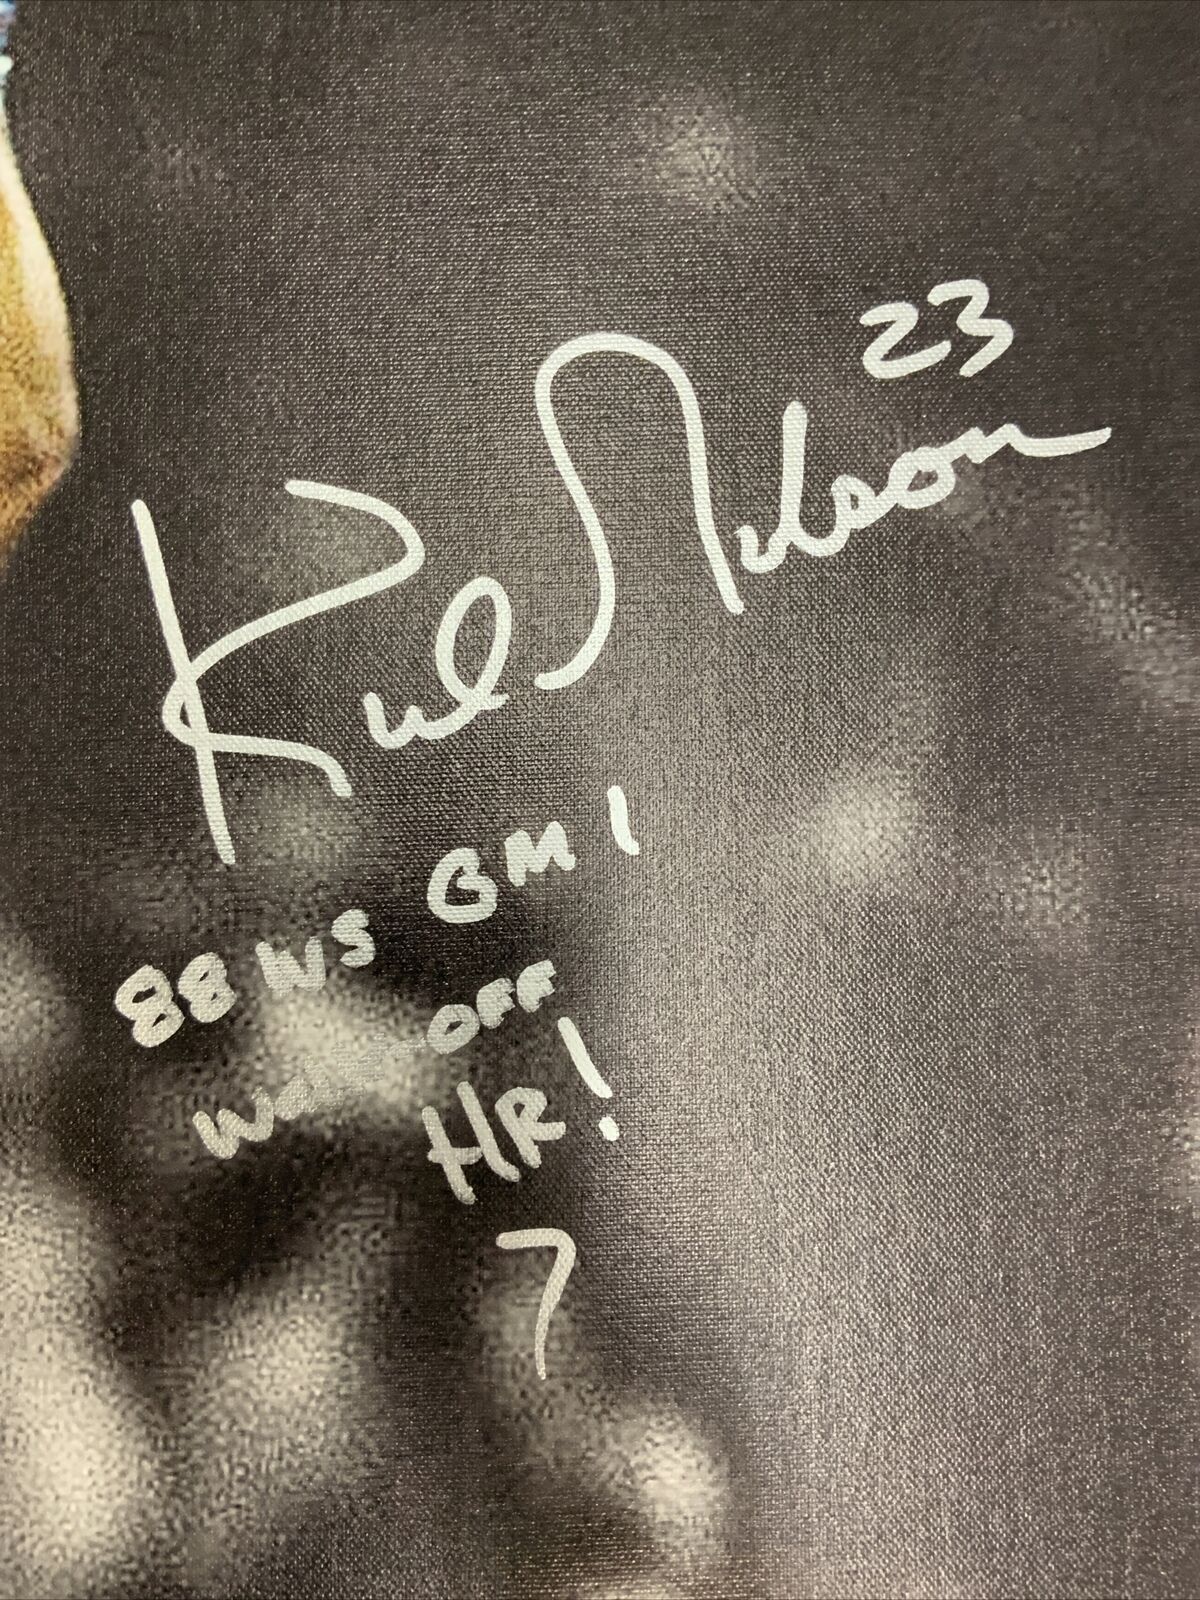 Kirk Gibson
23
88 WS GM 1
Walk-OFF
HR!
7